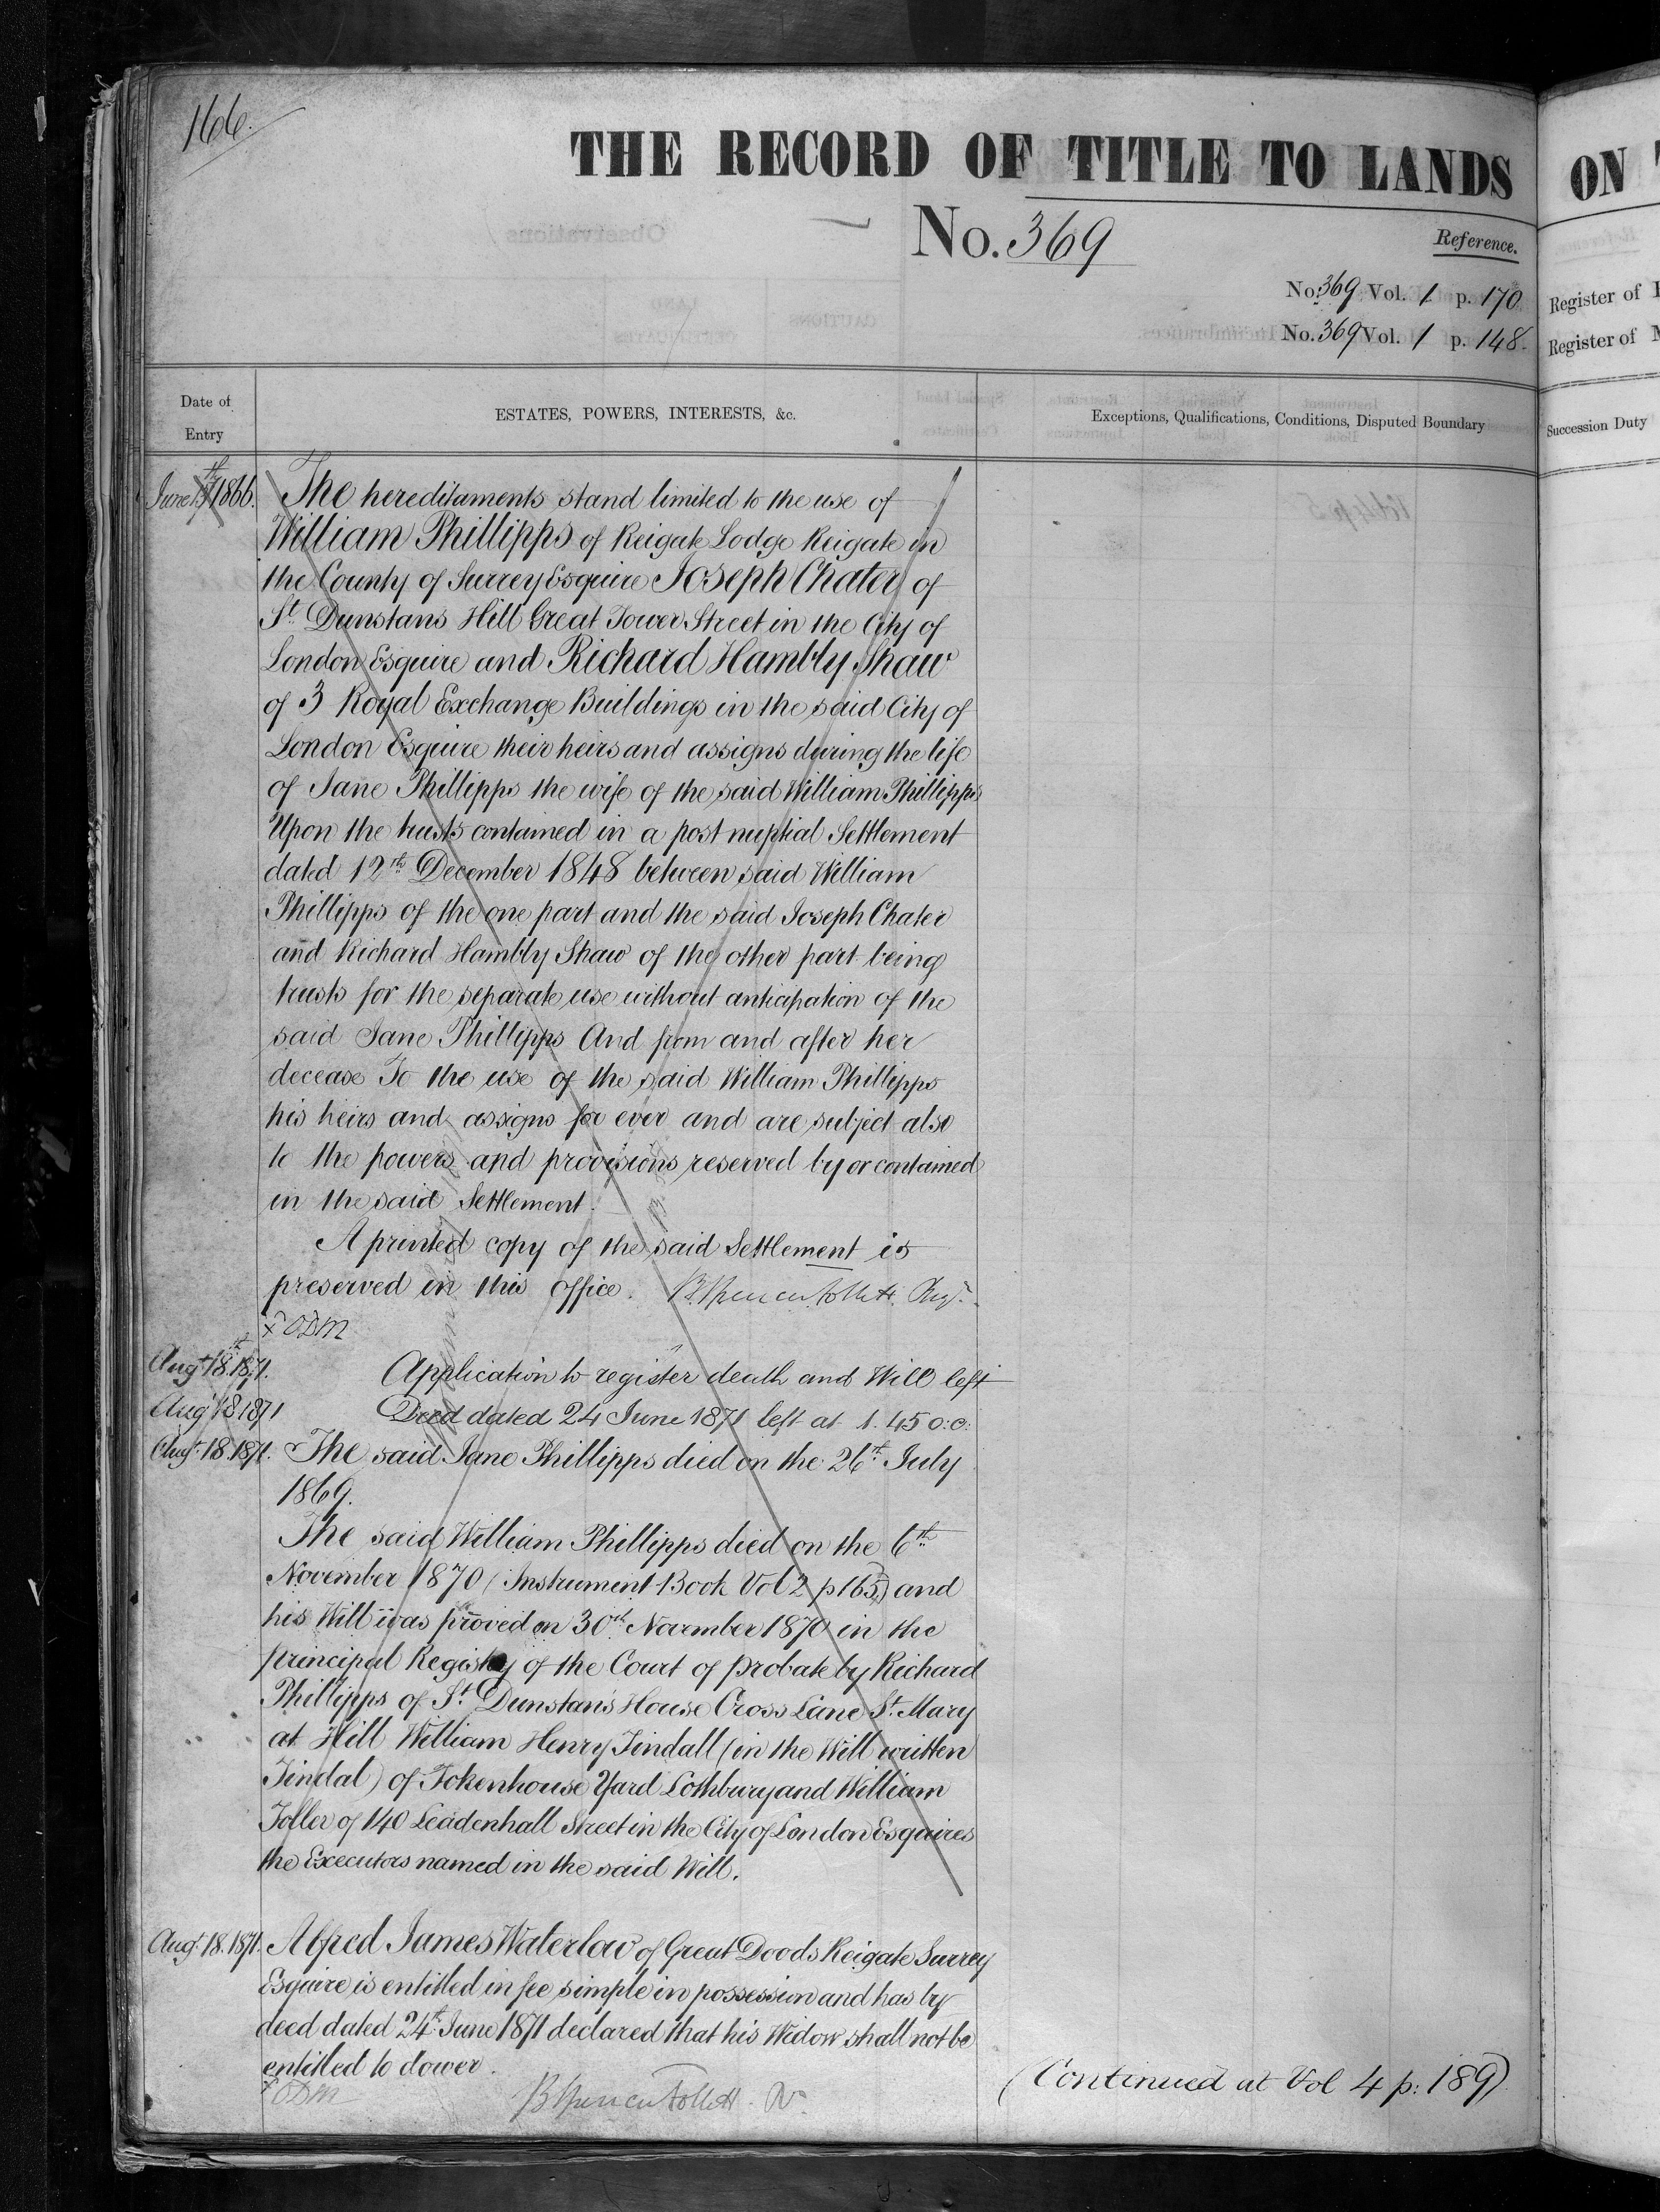 166.
THE RECORD OF TITLE TO LANDS
ON
No. 369
Reference.
No. 369 Vol. 1 p. 170.
Register of
No. 369 Vol. 1 p. 148.
Register of
Date of
Entry
ESTATES, POWERS, INTERESTS, &c.
Exceptions, Qualifications, Conditions, Disputed Boundary
Succession Duty
June 1866. The hereditaments stand limited to the use of
William Phillipps of Reigate Lodge Reigate in
the County of Surrey Esquire Joseph Chater of
St. Dunstans Hill Great Tower Street in the City of
London Esquire and Richard Hambly Shaw
of 3 Royal Exchange Buildings in the said City of
London Esquire their heirs and assigns during the life
of Jane Phillipps the wife of the said William Phillipps
Upon the trusts contained in a post nuptial Settlement
dated 12th December 1848 between said William
Phillipps of the one part and the said Joseph Chater
and Richard Hambly Shaw of the other part being
trusts for the separate use without anticipation of the
said Jane Phillipps And from and after her
decease To the use of the said William Phillipps
his heirs and assigns for ever and are subject also
to the powers and provisions reserved by or contained
in the said Settlement.
A printed copy of the said Settlement is
preserved in this office. B Spencer Follett. Regr.
x ODM
Augt. 18th. 1871. Application to register death and Will left
Augt 18 1871 Deed dated 24 June 1871 left at 1.45 o:c:
Augt. 18. 1871. The said Jane Phillipps died on the 26th July
1869.
The said William Phillipps died on the 6th
November 1870 (Instrument Book Vol 2 p 165) and
his Will was proved on 30th November 1870 in the
principal Registry of the Court of Probate by Richard
Phillipps of St. Dunstan's House Cross Lane St. Mary
at Hill William Henry Tindall (in the Will written
Tindal) of Tokenhouse Yard Lothbury and William
Toller of 140 Leadenhall Street in the City of London Esquires
the Executors named in the said Will.
Augt. 18. 1871. Alfred James Waterlow of Great Doods Reigate Surrey
Esquire is entitled in fee simple in possession and has by
deed dated 24th June 1871 declared that his Widow shall not be
entitled to dower.
x ODM
B Spencer Follett. R.
(Continued at Vol 4 p: 189)